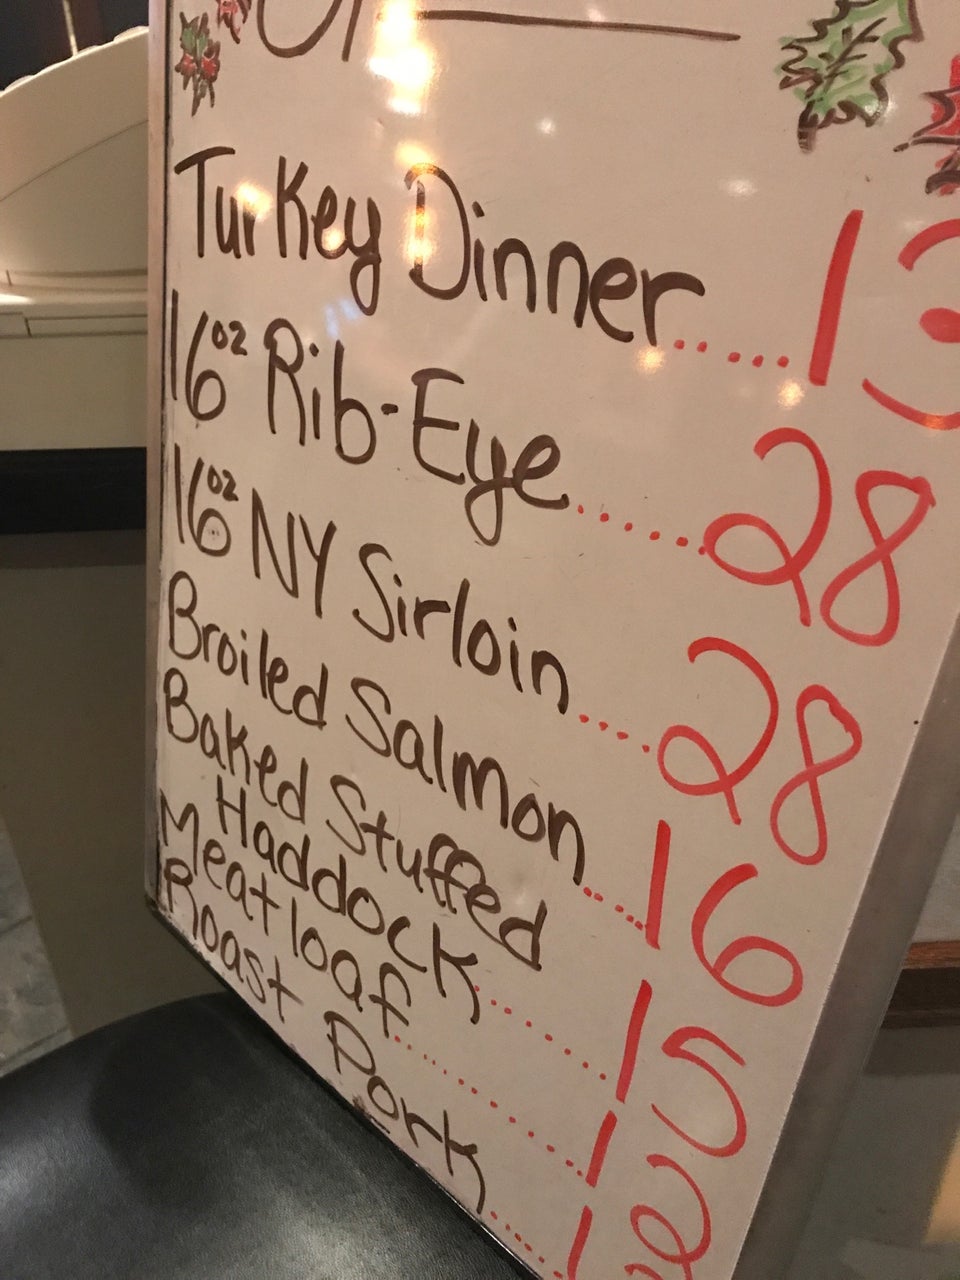 Turkey Dinner......13
16oz Rib-Eye......28
16oz NY Sirloin.....28
Broiled Salmon.....16
Baked Stuffed
Haddock........15
Meatloaf..........12
Roast Pork......1